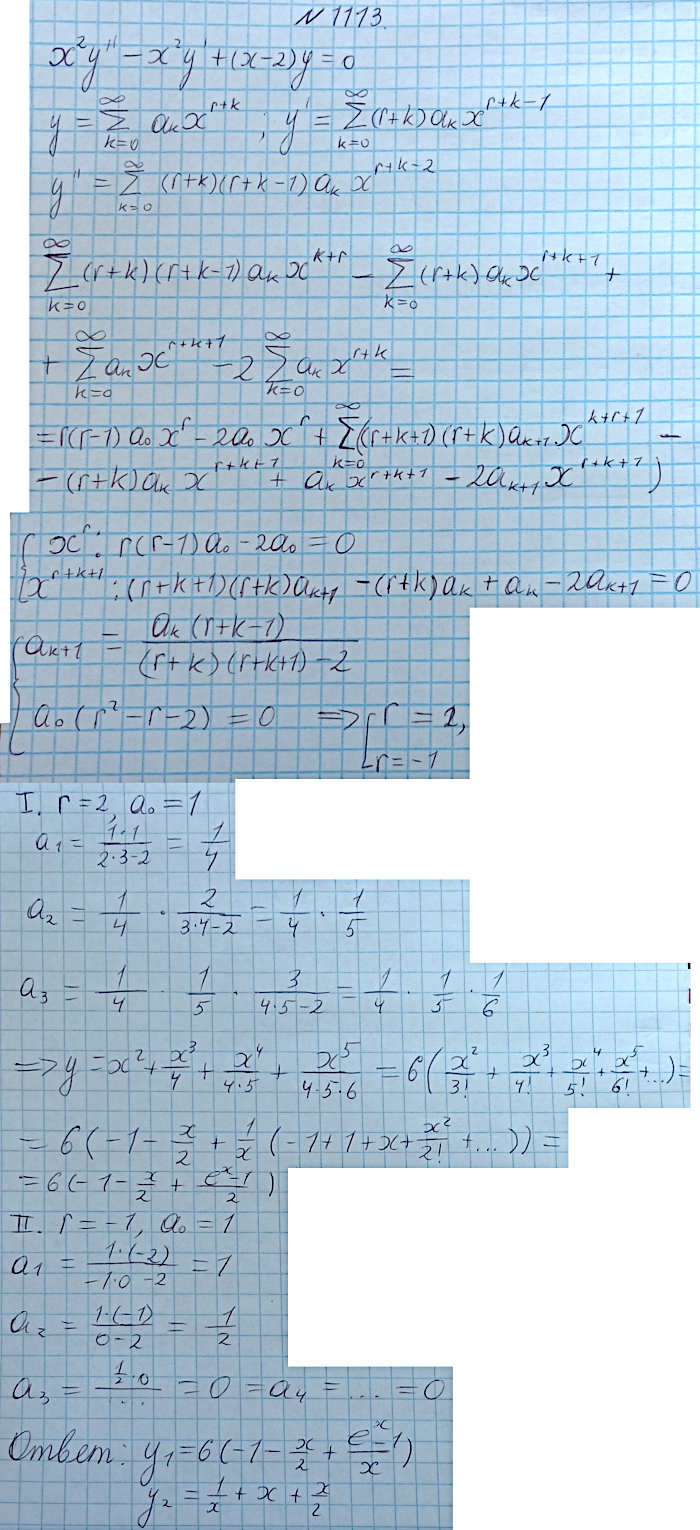 N 1113.
x²y'' - x²y' + (x-2)y = 0
y = ∑_{k=0}^{∞} aₖx^{r+k} ; y' = ∑_{k=0}^{∞} (r+k)aₖx^{r+k-1}
y'' = ∑_{k=0}^{∞} (r+k)(r+k-1)aₖx^{r+k-2}
∑_{k=0}^{∞} (r+k)(r+k-1)aₖx^{k+r} - ∑_{k=0}^{∞} (r+k)aₖx^{r+k+1} +
+ ∑_{k=0}^{∞} aₖx^{r+k+1} - 2∑_{k=0}^{∞} aₖx^{r+k} =
= r(r-1)a₀x^r - 2a₀x^r + ∑_{k=0}^{∞} ((r+k+1)(r+k)a_{k+1}x^{k+r+1} -
- (r+k)aₖx^{r+k+1} + aₖx^{r+k+1} - 2a_{k+1}x^{r+k+1})
{ x^r: r(r-1)a₀ - 2a₀ = 0
x^{r+k+1}: (r+k+1)(r+k)a_{k+1} - (r+k)aₖ + aₖ - 2a_{k+1} = 0
{ a_{k+1} = \frac{aₖ(r+k-1)}{(r+k)(r+k+1)-2}
a₀(r²-r-2) = 0 => [ r = 2,
r = -1
I. r = 2, a₀ = 1
a₁ = \frac{1·1}{2·3-2} = \frac{1}{4}
a₂ = \frac{1}{4} · \frac{2}{3·4-2} = \frac{1}{4} · \frac{1}{5}
a₃ = \frac{1}{4} · \frac{1}{5} · \frac{3}{4·5-2} = \frac{1}{4} · \frac{1}{5} · \frac{1}{6}
=> y = x² + \frac{x³}{4} + \frac{x⁴}{4·5} + \frac{x⁵}{4·5·6} = 6(\frac{x²}{3!} + \frac{x³}{4!} + \frac{x⁴}{5!} + \frac{x⁵}{6!} + ...) =
= 6(-1 - \frac{x}{2} + \frac{1}{x}(-1+1+x+\frac{x²}{2!} + ...)) =
= 6(-1 - \frac{x}{2} + \frac{e^x-1}{2})
II. r = -1, a₀ = 1
a₁ = \frac{1·(-2)}{-1·0-2} = 1
a₂ = \frac{1·(-1)}{0-2} = \frac{1}{2}
a₃ = \frac{\frac{1}{2}·0}{...} = 0 = a₄ = ... = 0
Ответ: y₁ = 6(-1 - \frac{x}{2} + \frac{e^x-1}{x})
y₂ = \frac{1}{x} + x + \frac{x}{2}